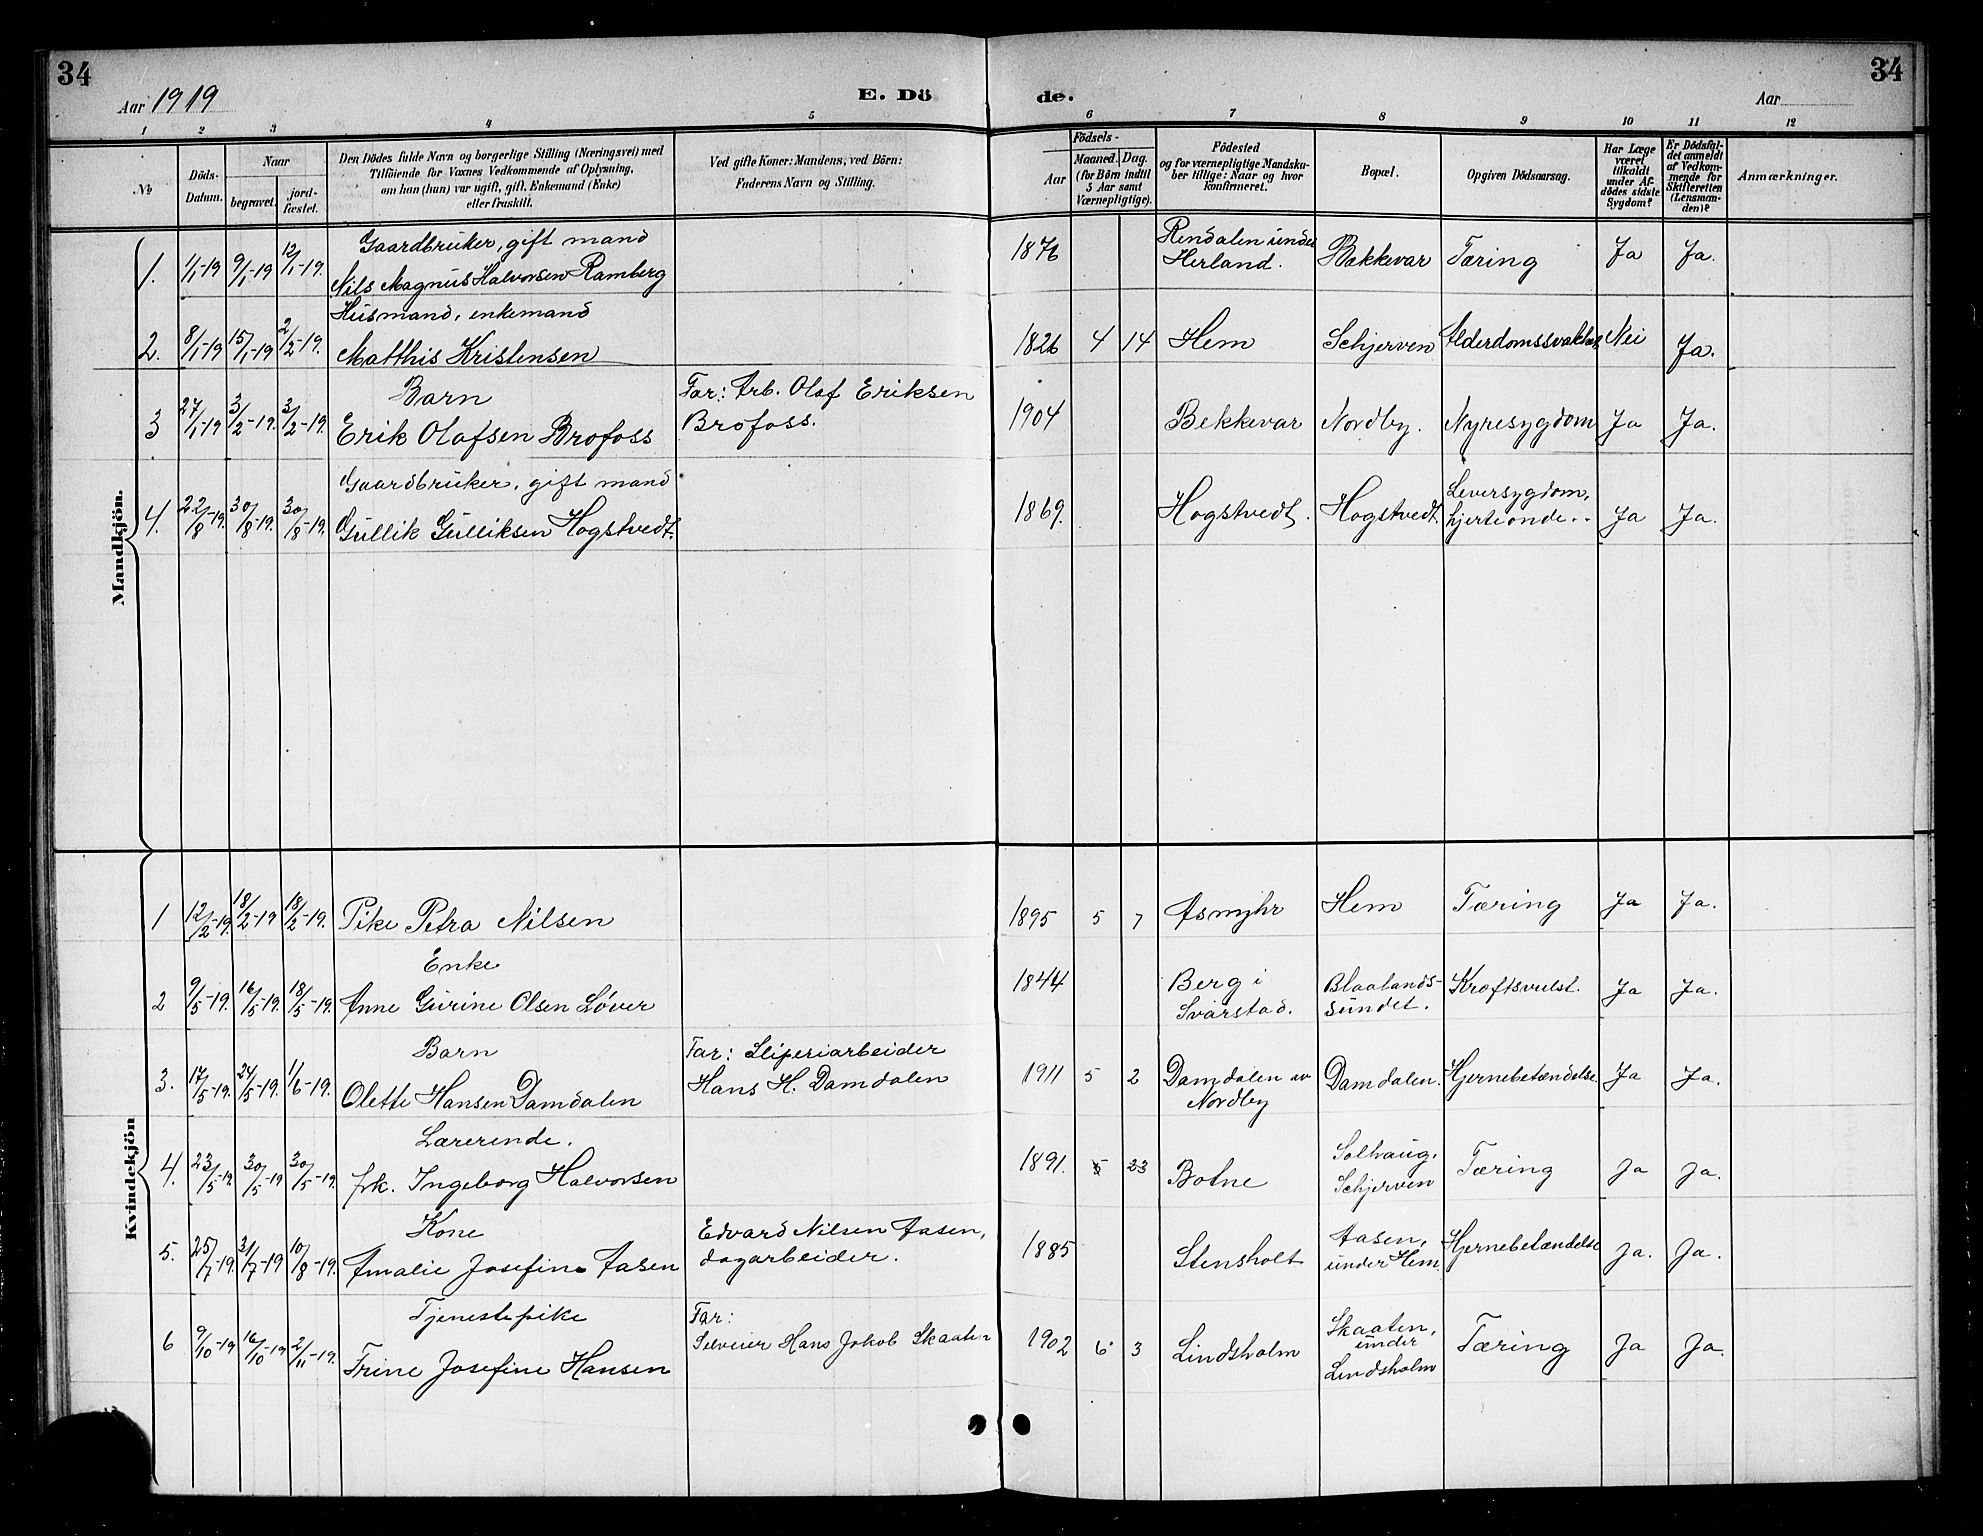 34
Aar 1919
E. Dö
de.
Aar
34
1 2 3 4 5 6 7 8 9 10 11 12
No
Döds-
Datum.
Naar
begravet.
jord-
fæstet.
Den Dödes fulde Navn og borgerlige Stilling (Næringsvei) med
Tilföiende for Voxnes Vedkommende af Oplysning,
om han (hun) var ugift, gift, Enkemand (Enke)
eller fraskilt.
Ved gifte Koner: Mandens, ved Börn:
Faderens Navn og Stilling.
Födsels-
Aar
Maaned. Dag.
(for Börn indtil
5 Aar samt
Værnepligtige).
Födested
og for værnepligtige Mandska-
ber tillige: Naar og hvor
konfirmeret.
Bopæl.
Opgiven Dödsaarsag.
Har Læge
været
tilkaldt
under Af-
dödes sidste
Sygdom?
Er Dödsfal-
det anmeldt
af Vedkom-
mende for
Skifteretten
(Lensman-
den)?
Anmærkninger.
Mandkjön.
Gaardbruker, gift mand
1. 1/1-19 9/1-19 12/1-19. Nils Magnus Halvorsen Ramberg 1876 Rendalen under Herland. Bakkevar Tæring Ja Ja.
Husmand, enkemand
2. 8/1-19 15/1-19 2/2-19. Matthis Kristensen 1826 4 14 Hem Schjerven Alderdomssvakhet Nei Ja.
Barn Far: Arb. Olaf Eriksen
3 27/1-19 3/2-19. 3/2-19. Erik Olafsen Brofoss Brofoss. 1904 Bekkevar Nordby. Nyresygdom Ja Ja.
Gaardbruker, gift mand Leversygdom,
4. 22/8-19. 30/8-19. 30/8-19. Gullik Gulliksen Hogstvedt. 1869. Hogstvedt. Hogstvedt hjerteonde.. Ja Ja.
Kvindekjön
1 12/2-19. 18/2-19 18/2-19. Pike Petra Nilsen 1895 5 7 Asmyhr Hem Tæring Ja Ja.
Enke Berg i Blaalands-
2 9/5-19. 16/5-19 18/5-19. Anne Gurine Olsen Løver 1844 Svarstad. sundet. Kræftsvulst. Ja Ja.
Barn Far: Sliperiarbeider
3. 17/5-19. 24/5-19. 1/6-19. Olette Hansen Damdalen Hans H. Damdalen 1911 5 2 Damdalen av Nordby Damdalen. Hjernebetændelse Ja Ja.
Lærerinde. Solhaug,
4. 23/5-19. 30/5-19 30/5-19. frk. Ingeborg Halvorsen 1891. 5 23 Botne Schjerven Tæring Ja Ja.
Kone Edvard Nilsen Aasen, Aasen,
5. 25/7-19. 31/7-19 10/8-19. Amalie Josefine Aasen dagarbeider. 1885 Stensholt under Hem. Hjernebetændelse Ja. Ja.
Tjenestepike Far: Skaaten,
6 9/10-19 16/10-19 2/11-19. Trine Josefine Hansen Selveier Hans Jakob Skaaten 1902 6 3 Lindsholm under Lindsholm Tæring Ja Ja.